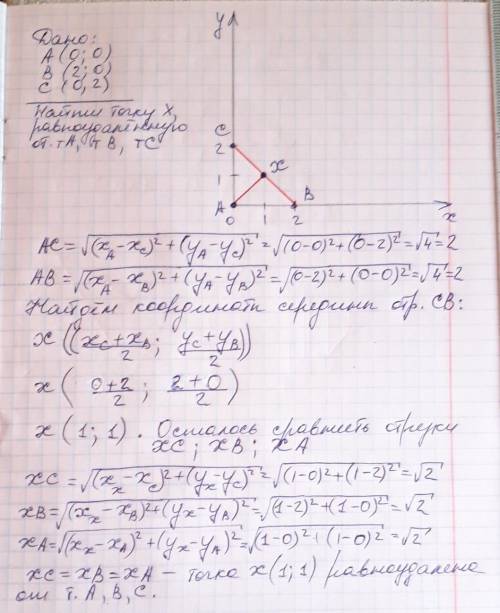 Дано:
A (0; 0)
B (2; 0)
C (0, 2)
Найти точку X,
равноудалённую
от. тA, т B, тC
y
C
2
1
X
A
B
0 1 2
x
AC=√((x_A-x_C)²+(y_A-y_C)²)=√((0-0)²+(0-2)²)=√4=2
AB=√((x_A-x_B)²+(y_A-y_B)²)=√((0-2)²+(0-0)²)=√4=2
Найдём координаты середины отр. CB:
X ((x_C+x_B)/2; (y_C+y_B)/2)
X ((0+2)/2; (2+0)/2)
X (1; 1). Осталось сравнить отрезки
XC; XB; XA
XC=√((x_x-x_C)²+(y_x-y_C)²)=√((1-0)²+(1-2)²)=√2
XB=√((x_x-x_B)²+(y_x-y_B)²)=√((1-2)²+(1-0)²)=√2
XA=√((x_x-x_A)²+(y_x-y_A)²)=√((1-0)²+(1-0)²)=√2
XC=XB=XA – точка X(1;1) равноудалена
от т. A, B, C.